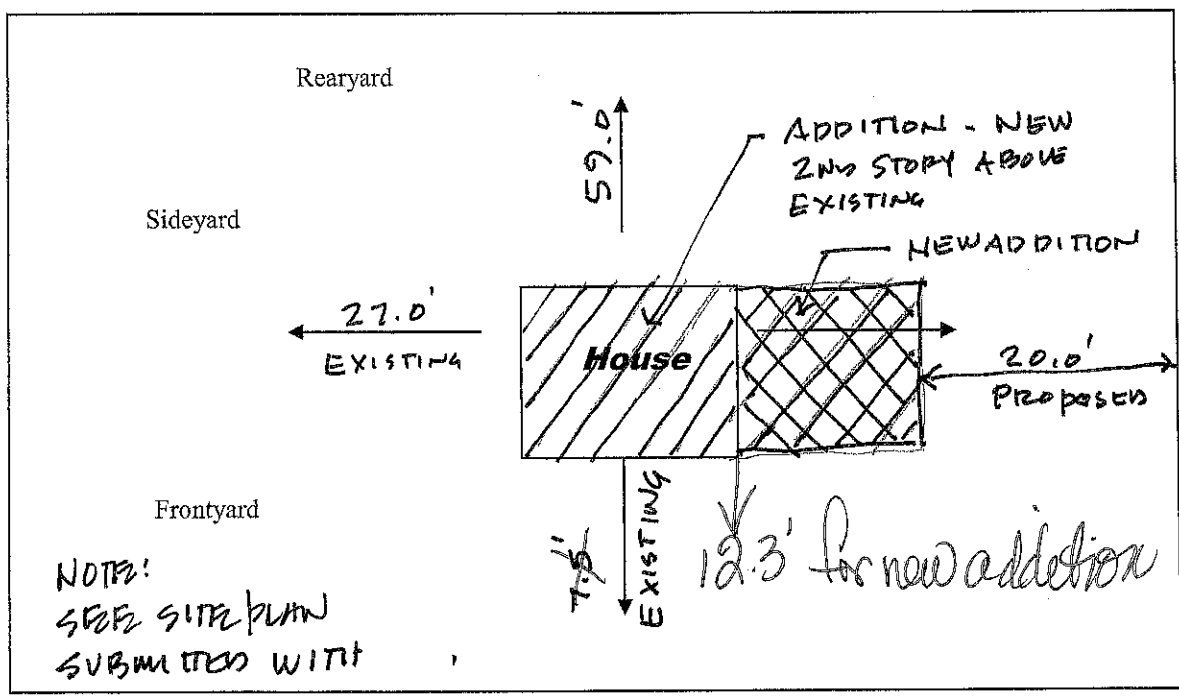 Rearyard
59.0'
ADDITION - NEW
2ND STORY ABOVE
EXISTING
Sideyard
NEW ADDITION
27.0'
EXISTING
House
20.0'
PROPOSED
Frontyard
7.5'
EXISTING
12.3' for new addetion
NOTE:
SEE SITE PLAN
SUBMITTED WITH